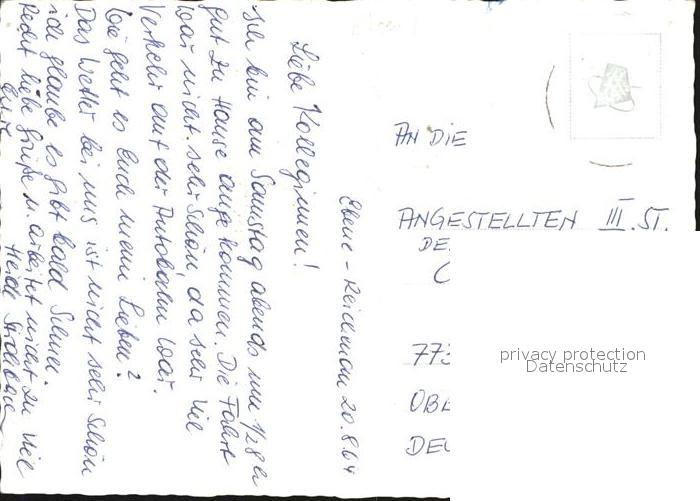 Ebene-Reichenau 20.8.64
Liebe Kolleginnen!
Ich bin am Samstag abends um 1/28 h
gut zu Hause angekommen. Die Fahrt
war nicht sehr schön, da sehr viel
Verkehr auf der Autobahn war.
Wie geht es Euch meine Lieben?
Das Wetter bei uns ist nicht sehr schön
ich glaube es gibt bald Schnee.
Recht liebe Grüße u. arbeitet nicht zu viel
Eure
Heidi
AN DIE
ANGESTELLTEN III. ST.
DE
C
773
OBE
DEU
privacy protection
Datenschutz